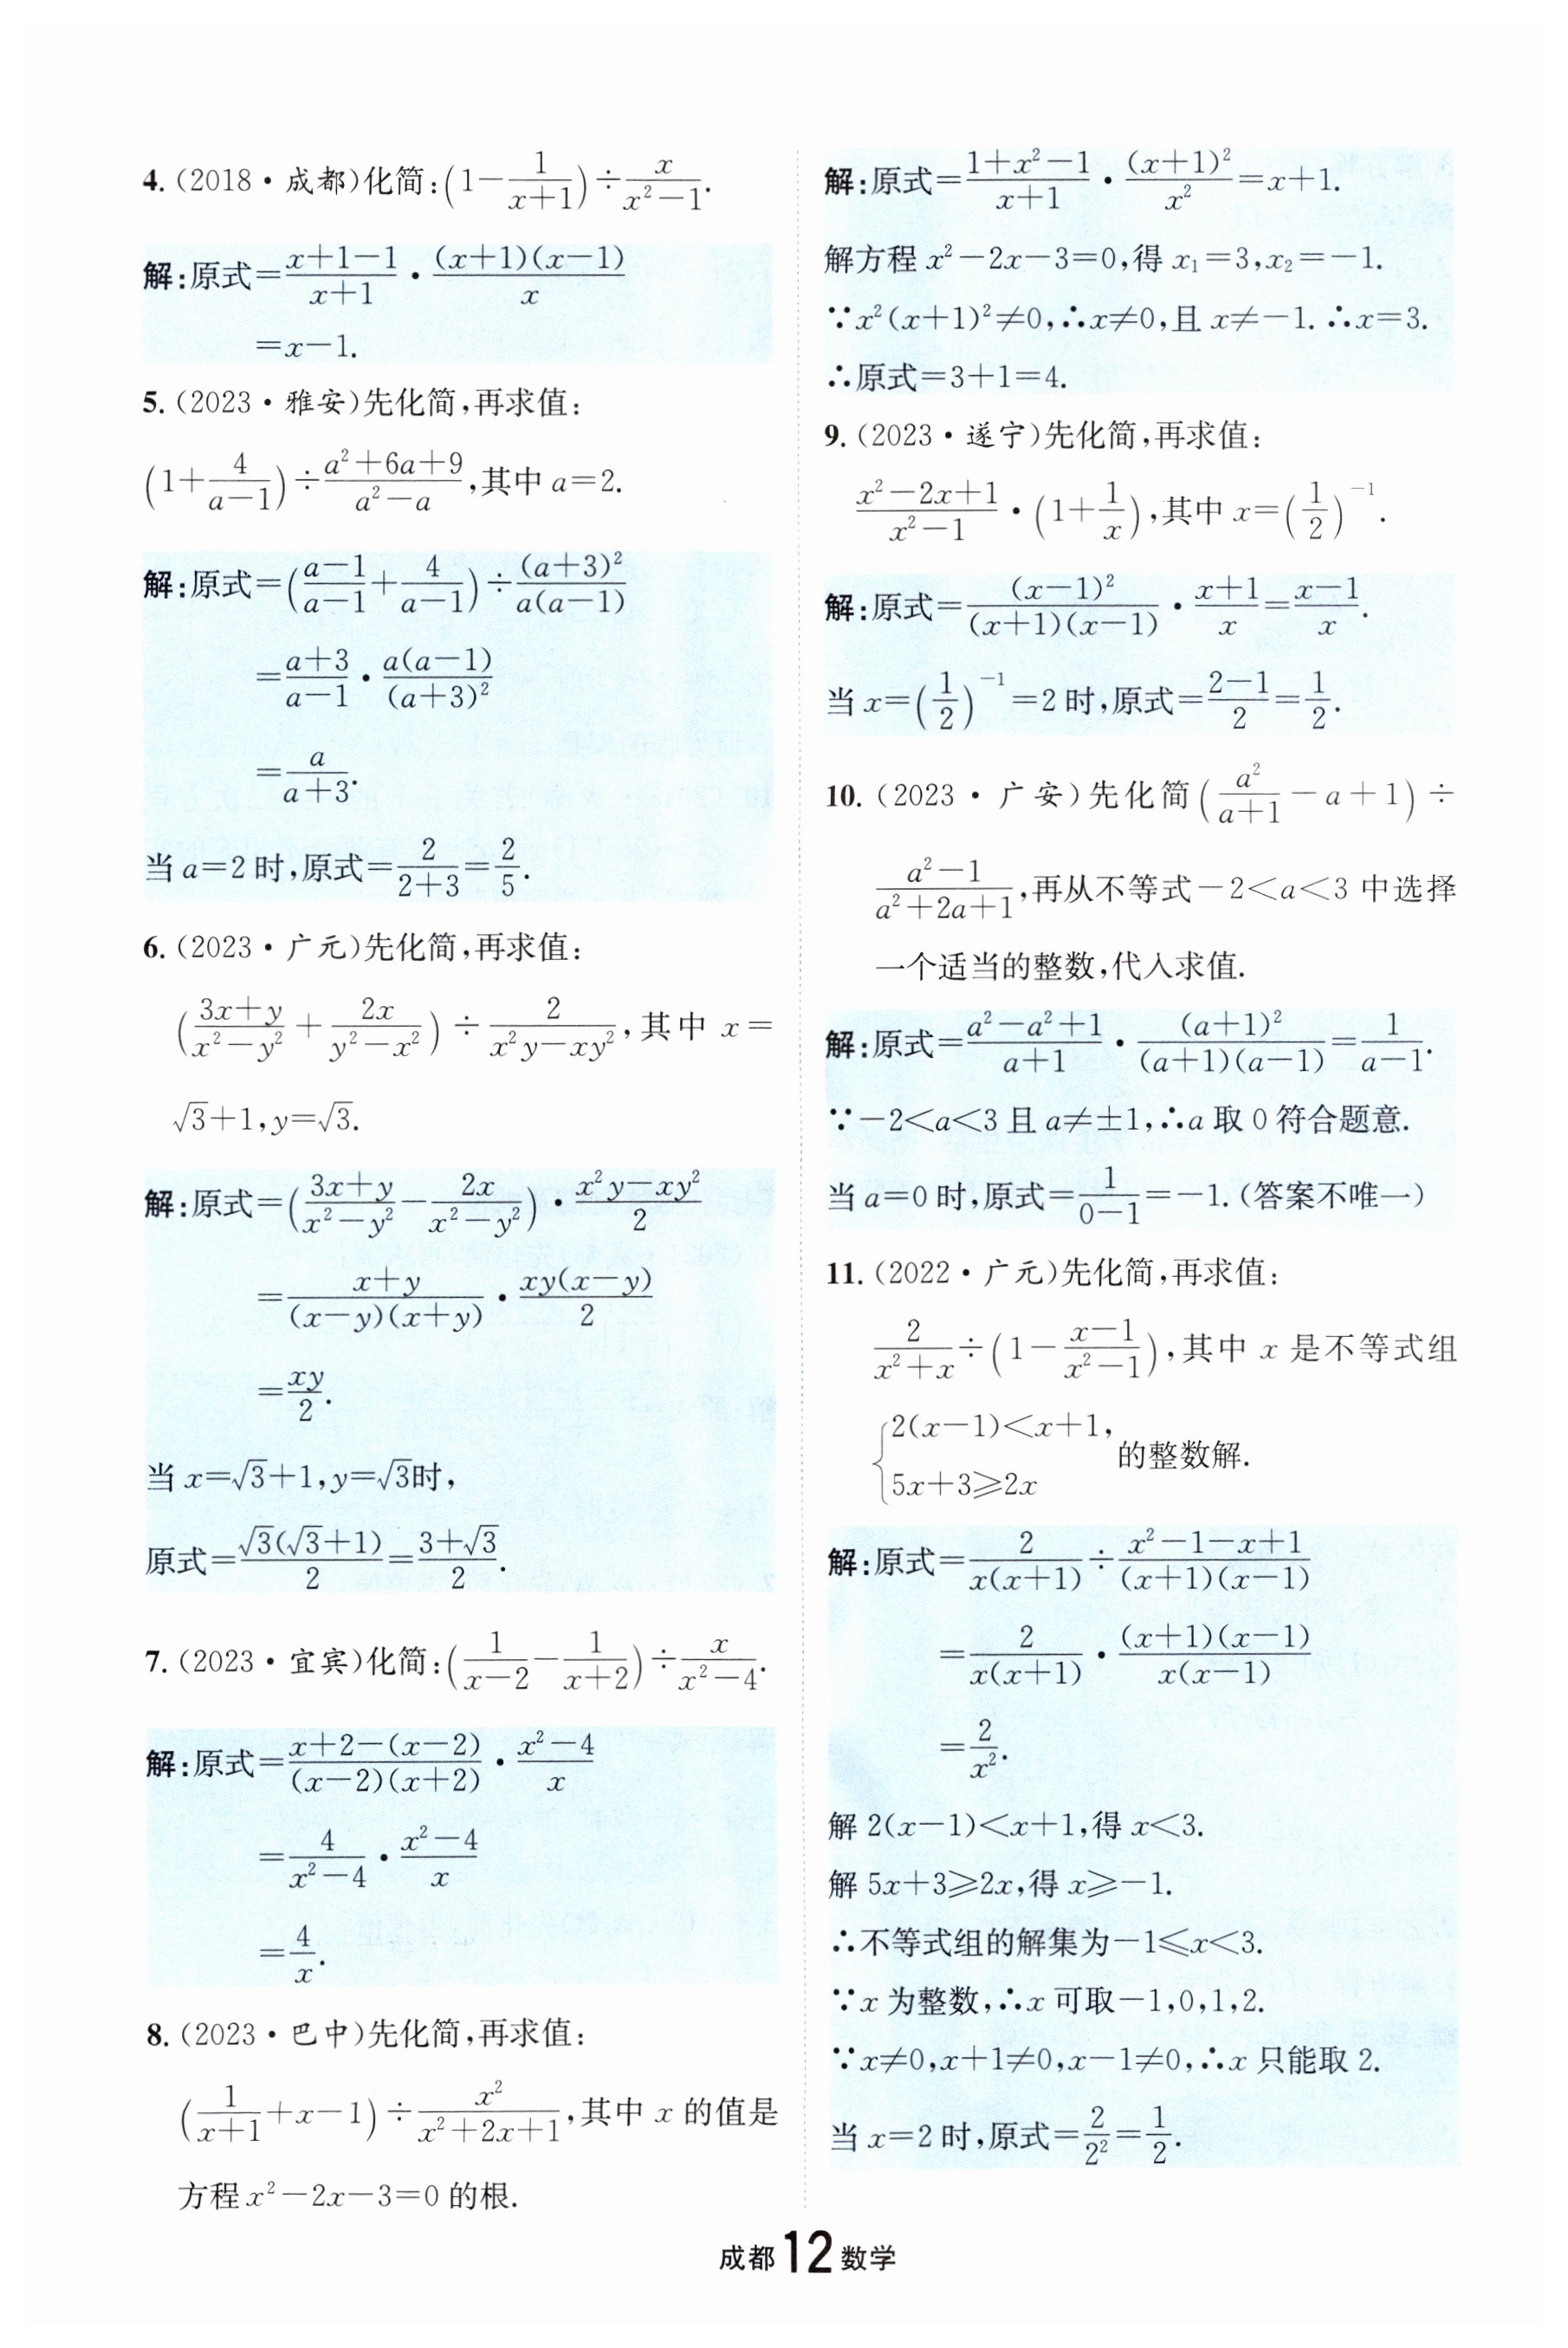 4. (2018·成都)化简:(1-\frac{1}{x+1})÷\frac{x}{x²-1}.
解:原式=\frac{x+1-1}{x+1}·\frac{(x+1)(x-1)}{x}
=x-1.
5. (2023·雅安)先化简,再求值:
(1+\frac{4}{a-1})÷\frac{a²+6a+9}{a²-a},其中 a=2.
解:原式=(\frac{a-1}{a-1}+\frac{4}{a-1})÷\frac{(a+3)²}{a(a-1)}
=\frac{a+3}{a-1}·\frac{a(a-1)}{(a+3)²}
=\frac{a}{a+3}.
当 a=2 时,原式=\frac{2}{2+3}=\frac{2}{5}.
6. (2023·广元)先化简,再求值:
(\frac{3x+y}{x²-y²}+\frac{2x}{y²-x²})÷\frac{2}{x²y-xy²},其中 x=
√3+1,y=√3.
解:原式=(\frac{3x+y}{x²-y²}-\frac{2x}{x²-y²})·\frac{x²y-xy²}{2}
=\frac{x+y}{(x-y)(x+y)}·\frac{xy(x-y)}{2}
=\frac{xy}{2}.
当 x=√3+1,y=√3时,
原式=\frac{√3(√3+1)}{2}=\frac{3+√3}{2}.
7. (2023·宜宾)化简:(\frac{1}{x-2}-\frac{1}{x+2})÷\frac{x}{x²-4}.
解:原式=\frac{x+2-(x-2)}{(x-2)(x+2)}·\frac{x²-4}{x}
=\frac{4}{x²-4}·\frac{x²-4}{x}
=\frac{4}{x}.
8. (2023·巴中)先化简,再求值:
(\frac{1}{x+1}+x-1)÷\frac{x²}{x²+2x+1},其中 x 的值是
方程 x²-2x-3=0 的根.
解:原式=\frac{1+x²-1}{x+1}·\frac{(x+1)²}{x²}=x+1.
解方程 x²-2x-3=0,得 x₁=3,x₂=-1.
∵x²(x+1)²≠0,∴x≠0,且 x≠-1. ∴x=3.
∴原式=3+1=4.
9. (2023·遂宁)先化简,再求值:
\frac{x²-2x+1}{x²-1}·(1+\frac{1}{x}),其中 x=(\frac{1}{2})⁻¹.
解:原式=\frac{(x-1)²}{(x+1)(x-1)}·\frac{x+1}{x}=\frac{x-1}{x}.
当 x=(\frac{1}{2})⁻¹=2 时,原式=\frac{2-1}{2}=\frac{1}{2}.
10. (2023·广安)先化简(\frac{a²}{a+1}-a+1)÷
\frac{a²-1}{a²+2a+1},再从不等式-2<a<3 中选择
一个适当的整数,代入求值.
解:原式=\frac{a²-a²+1}{a+1}·\frac{(a+1)²}{(a+1)(a-1)}=\frac{1}{a-1}.
∵-2<a<3 且 a≠±1,∴a 取 0 符合题意.
当 a=0 时,原式=\frac{1}{0-1}=-1.(答案不唯一)
11. (2022·广元)先化简,再求值:
\frac{2}{x²+x}÷(1-\frac{x-1}{x²-1}),其中 x 是不等式组
{2(x-1)<x+1,
5x+3⩾2x
的整数解.
解:原式=\frac{2}{x(x+1)}÷\frac{x²-1-x+1}{(x+1)(x-1)}
=\frac{2}{x(x+1)}·\frac{(x+1)(x-1)}{x(x-1)}
=\frac{2}{x²}.
解 2(x-1)<x+1,得 x<3.
解 5x+3⩾2x,得 x⩾-1.
∴不等式组的解集为-1⩽x<3.
∵x 为整数,∴x 可取-1,0,1,2.
∵x≠0,x+1≠0,x-1≠0,∴x 只能取 2.
当 x=2 时,原式=\frac{2}{2²}=\frac{1}{2}.
成都 12 数学